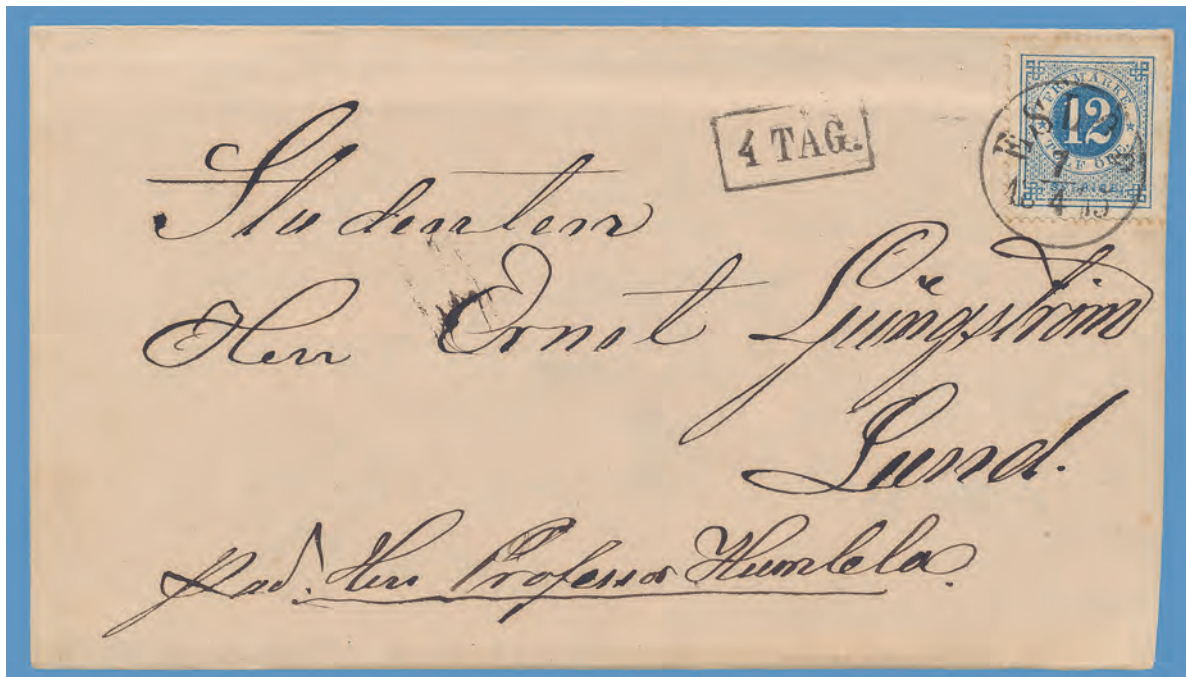 4 TÅG.
FRIMÄRKE
12
TOLF ÖRE.
SVERIGE
7
4
Studenten
Herr Ernst Ljüngström
Lund.
pad. Herr Professor Humbla.